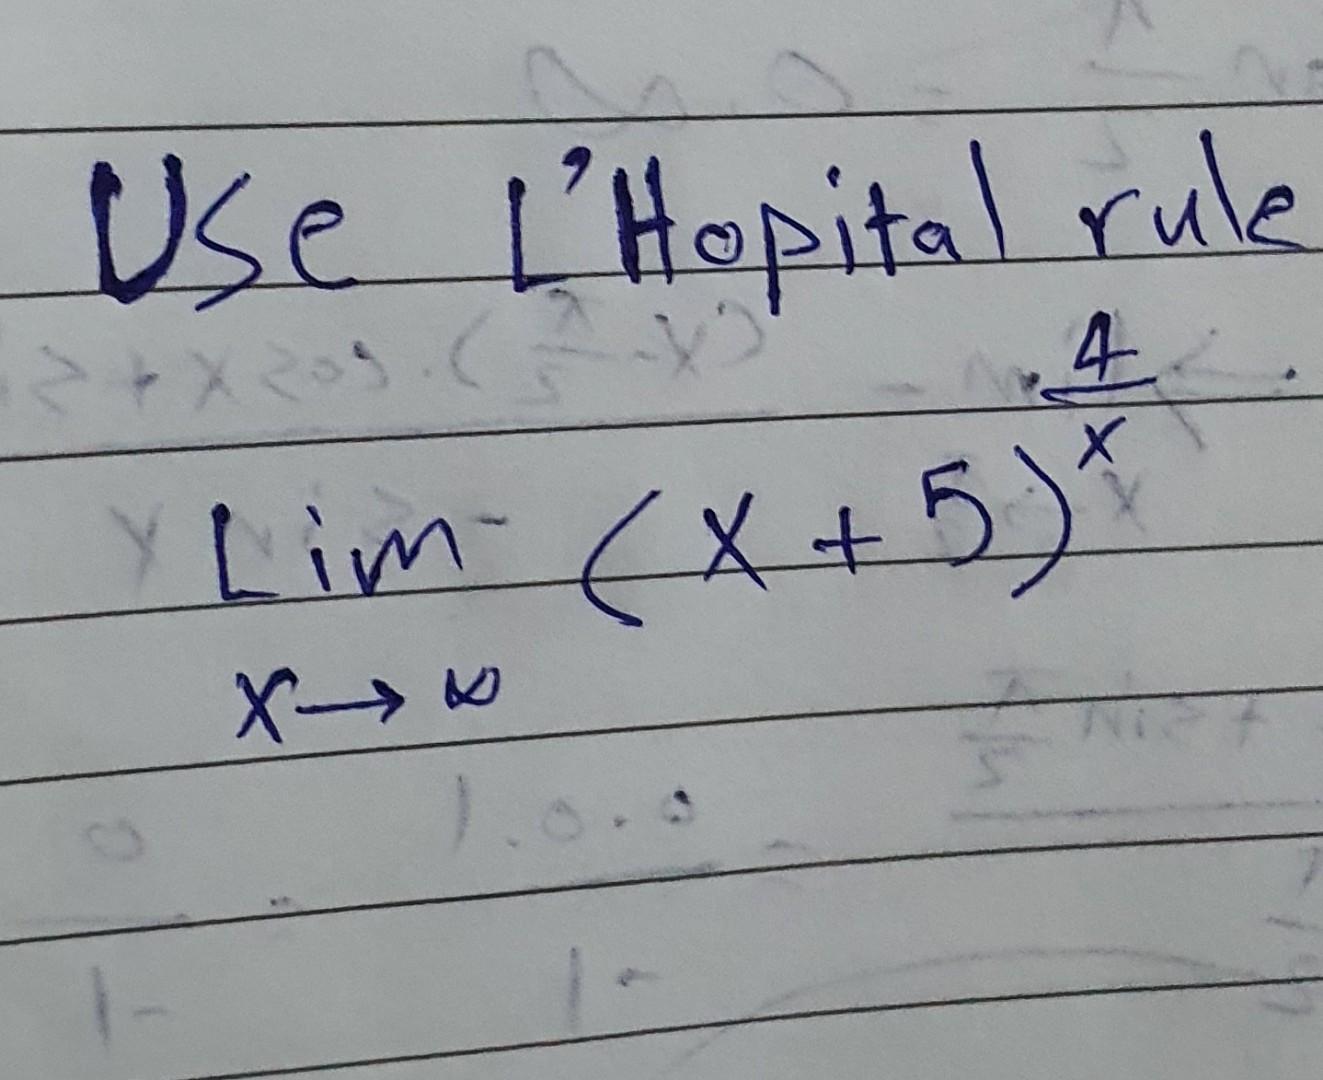 Use L'Hopital rule
Lim (x + 5)^(4/x)
x → ∞